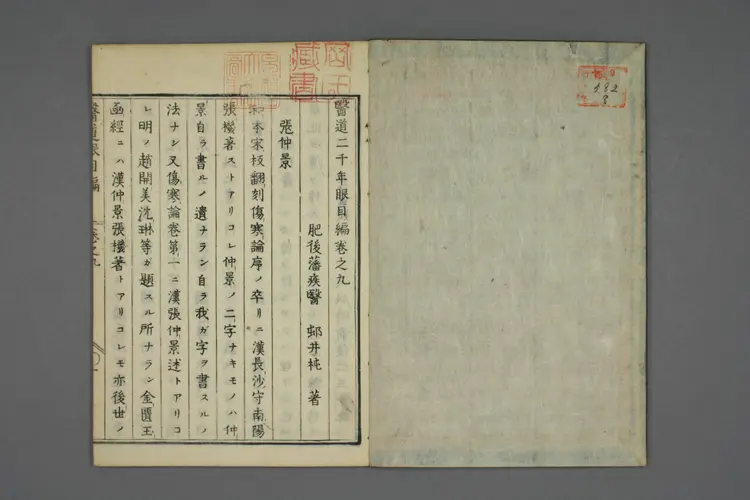 醫道二千年眼目編卷之九
肥後藩疾醫 邨井杶 著
張仲景
和本宋板翻刻傷寒論序ノ卒リニ漢長沙守南陽
張機著ストアリコレ仲景ノ二字ナキモノハ仲
景自ラ書ルノ遺ナラン自ラ我ガ字ヲ書スルノ
法ナシ又傷寒論卷第一ニ漢張仲景述トアリコ
レ明ノ趙開美沈琳等ガ題スル所ナラン金匱玉
函經ニハ漢仲景張機著トアリコレモ亦後世ノ
醫道眼目編 卷之九
藏書